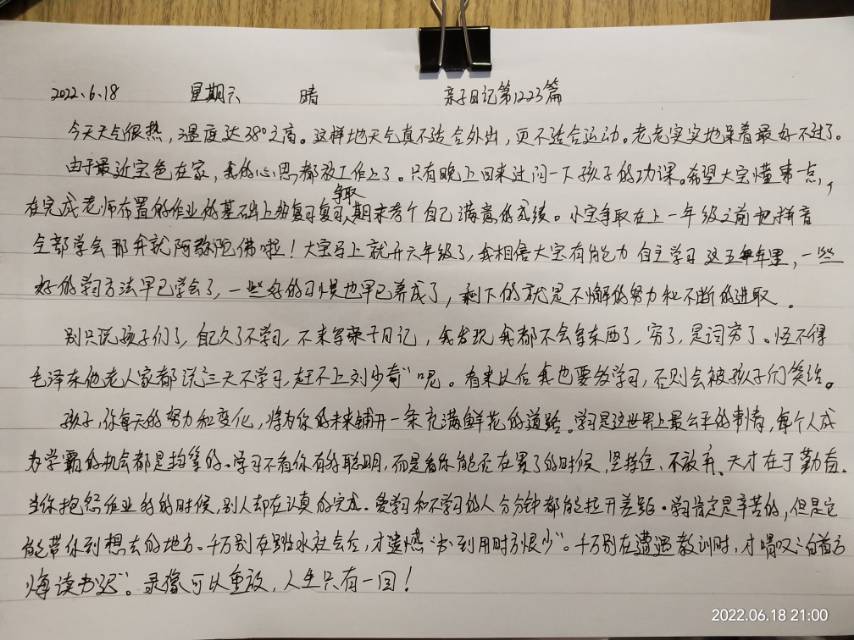 2022.6.18 星期六 晴 亲子日记第1223篇
今天天气很热，温度达38°之高。这样地天气真不适合外出，更不适合运动。老老实实地呆着最好不过了。
由于最近宝爸在家，我的心思都放工作上了。只有晚上回来过问一下孩子的功课。希望大宝懂事一点，
在完成老师布置的作业的基础上把复习复习，争取期末考个自己满意的成绩。小宝争取在上一年级之前把拼音
全部学会那我就阿弥陀佛啦！大宝马上就开六年级了，我相信大宝有能力自主学习这五年里，一些
好的学习方法早已学会了，一些好的习惯也早已养成了，剩下的就是不懈的努力和不断的进取。
别只说孩子们了，自己久了不学习，不来写亲子日记，我发现我都不会写东西了，穷了，是词穷了。怪不得
毛泽东他老人家都说"三天不学习，赶不上刘少奇"呢。看来以后我也要多学习，否则会被孩子们笑话。
孩子，你每天的努力和变化，将为你的未来铺开一条充满鲜花的道路。学习是这世界上最公平的事情，每个人成
为学霸的机会都是均等的。学习不看你有的聪明，而是看你能否在累了的时候，坚持住，不放弃、天才在于勤奋。
当你抱怨作业多的时候，别人却在认真的完成。爱学习和不学习的人分分钟都能拉开差距。学习肯定是辛苦的，但是它
能带你到想去的地方。千万别在踏水社会后，才遗憾"书到用时方恨少"。千万别在遭遇教训时，才嘆叹："白首方
悔读书迟"。录像可以重放，人生只有一回！
2022.06.18 21:00